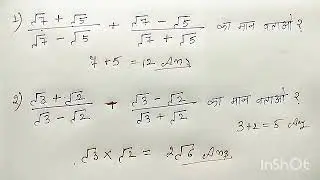 1) (√7 + √5)/(√7 − √5) + (√7 − √5)/(√7 + √5) का मान बताओ ?
7 + 5 = 12 Ans
2) (√3 + √2)/(√3 − √2) + (√3 − √2)/(√3 + √2) का मान बताओ ?
3 + 2 = 5 Ans
√3 × √2 = 2√6 Ans
InShOt